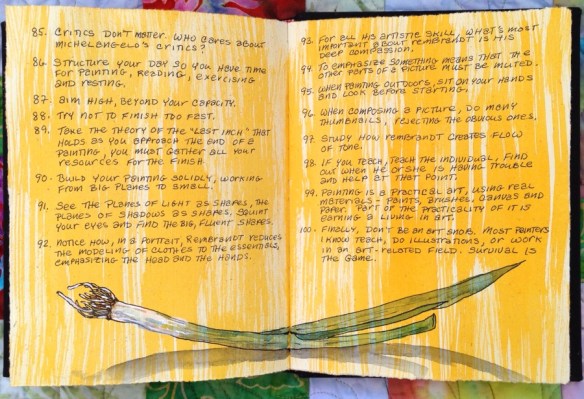 85. Critics don't matter. Who cares about
Michelangelo's critics?
86. Structure your day so you have time
for painting, reading, exercising
and resting.
87. Aim high, beyond your capacity.
88. Try not to finish too fast.
89. Take the theory of the "last inch" that
holds as you approach the end of a
painting, you must gather all your
resources for the finish.
90. Build your painting solidly, working
from big planes to small.
91. See the planes of light as shapes, the
planes of shadows as shapes. Squint
your eyes and find the big, fluent shapes.
92. Notice how, in a portrait, Rembrandt reduces
the modeling of clothes to the essentials,
emphasizing the head and the hands.
93. For all his artistic skill, what's most
important about Rembrandt is his
deep compassion.
94. To emphasize something means that the
other parts of a picture must be muted.
95. When painting outdoors, sit on your hands
and look before starting.
96. When composing a picture, do many
thumbnails, rejecting the obvious ones.
97. Study how Rembrandt creates flow
of tone.
98. If you teach, teach the individual. Find
out when he or she is having trouble
and help at that point.
99. Painting is a practical art, using real
materials - paints, brushes, canvas and
paper. Part of the practicality of it is
earning a living in art.
100. Finally, don't be an art snob. Most painters
I know teach, do illustrations, or work
in an art-related field. Survival is
the game.